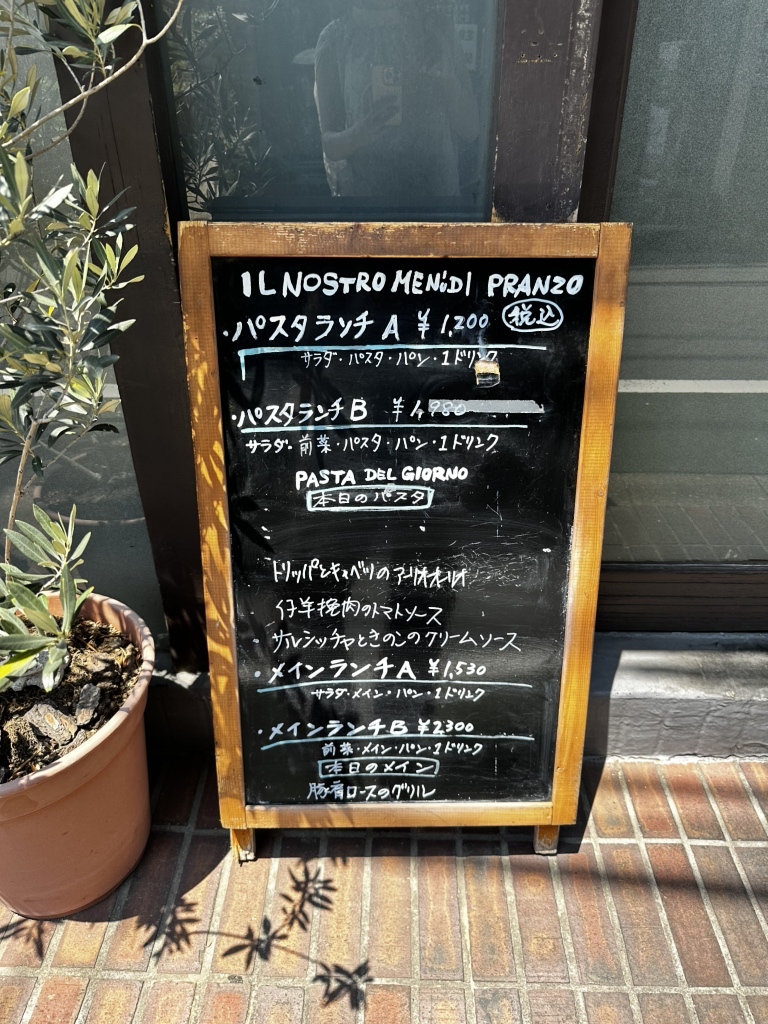 IL NOSTRO MENÙ DI PRANZO
・パスタランチ A ¥1,200 税込
サラダ・パスタ・パン・1ドリンク
・パスタランチ B
サラダ・前菜・パスタ・パン・1ドリンク
PASTA DEL GIORNO
本日のパスタ
トリッパとキャベツのアーリオオーリオ
仔羊挽肉のトマトソース
サルシッチャときのこのクリームソース
・メインランチ A ¥1,530
サラダ・メイン・パン・1ドリンク
・メインランチ B ¥2300
前菜・メイン・パン・1ドリンク
本日のメイン
豚肩ロースのグリル